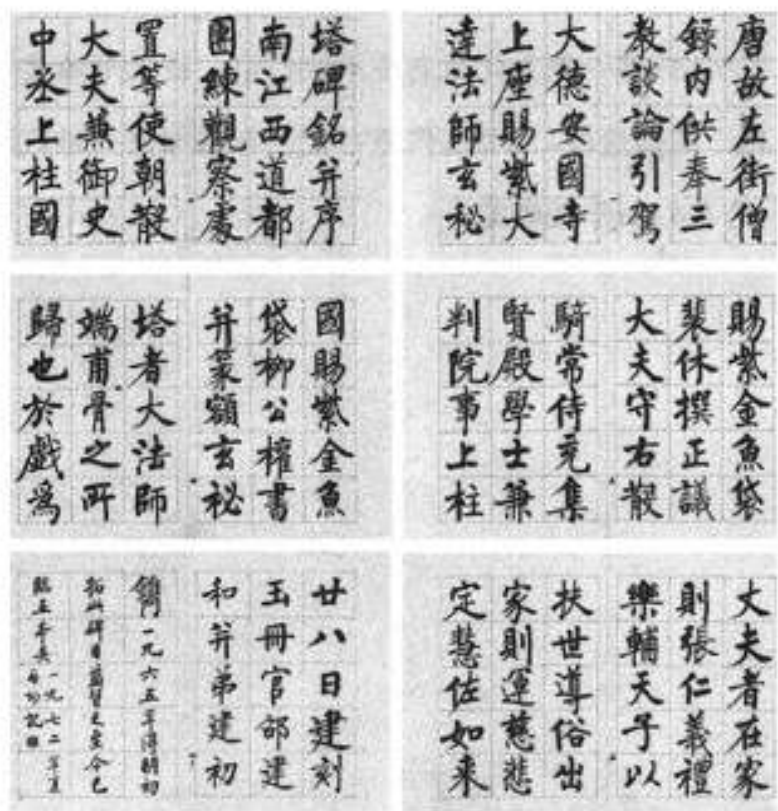 唐故左街僧
錄内供奉三
教談論引駕
大德安國寺
上座賜紫大
達法師玄秘
塔碑銘并序
南江西道都
團練觀察處
置等使朝散
大夫兼御史
中丞上柱國
賜紫金魚袋
裴休撰正議
大夫守右散
騎常侍充集
賢殿學士兼
判院事上柱
國賜紫金魚
袋柳公權書
并篆額玄秘
塔者大法師
端甫骨之所
歸也於戲爲
丈夫者在家
則張仁義禮
樂輔天子以
扶世導俗出
家則運慈悲
定慧佐如来
廿八日建刻
玉冊官邵建
和并弟建初
鐫 一九六五年得明初
拓此碑日習之至今已
臨五本矣 一九七二年夏
啓功記